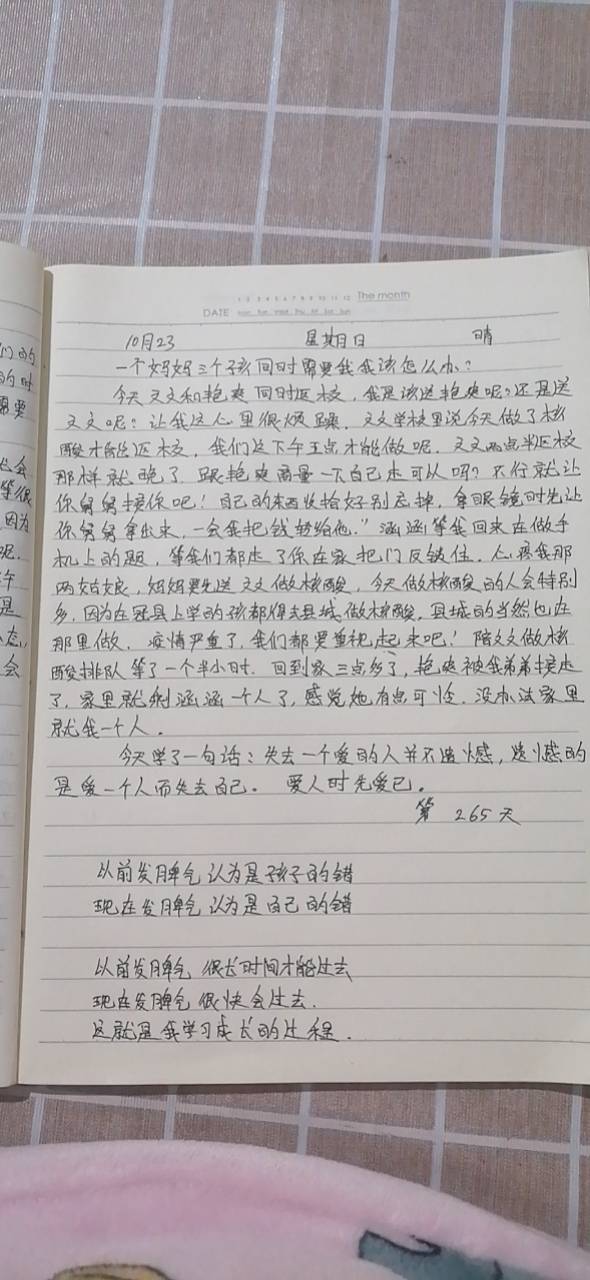 们的
的时
需要
1 2 3 4 5 6 7 8 9 10 11 12 The month
DATE
10月23 星期日 晴
一个妈妈三个孩同时需要我我该怎么办?
今天文文和艳爽同时返校,我是该送艳爽呢?还是送
文文呢?让我这心里很烦躁.文文学校里说今天做了核
酸才能返校,我们这下午五点才能做呢.文文两点半返校
那样就晚了.跟艳爽商量一下自己走可以吗?不行就让
你舅舅接你吧!自己的东西收拾好别忘掉,拿眼镜时先让
你舅舅拿出来,一会我把钱转给他."涵涵等我回来在做手
机上的题,等我们都走了你在家把门反锁住.心疼我那
两姑娘,妈妈要先送文文做核酸,今天做核酸的人会特别
多,因为在冠县上学的孩都得去县城做核酸,县城的当然也在
那里做.疫情严重了,我们都要重视起来吧!陪文文做核
酸排队等了一个半小时.回到家三点多了,艳爽被我弟弟接走
了,家里就剩涵涵一个人了,感觉她有点可怜.没办法家里
就我一个人.
今天学了一句话:失去一个爱的人并不遗憾,遗憾的
是爱一个人而失去自己. 爱人时先爱己.
第 265天
以前发脾气认为是孩子的错
现在发脾气认为是自己的错
以前发脾气很长时间才能过去
现在发脾气很快会过去.
这就是我学习成长的过程.